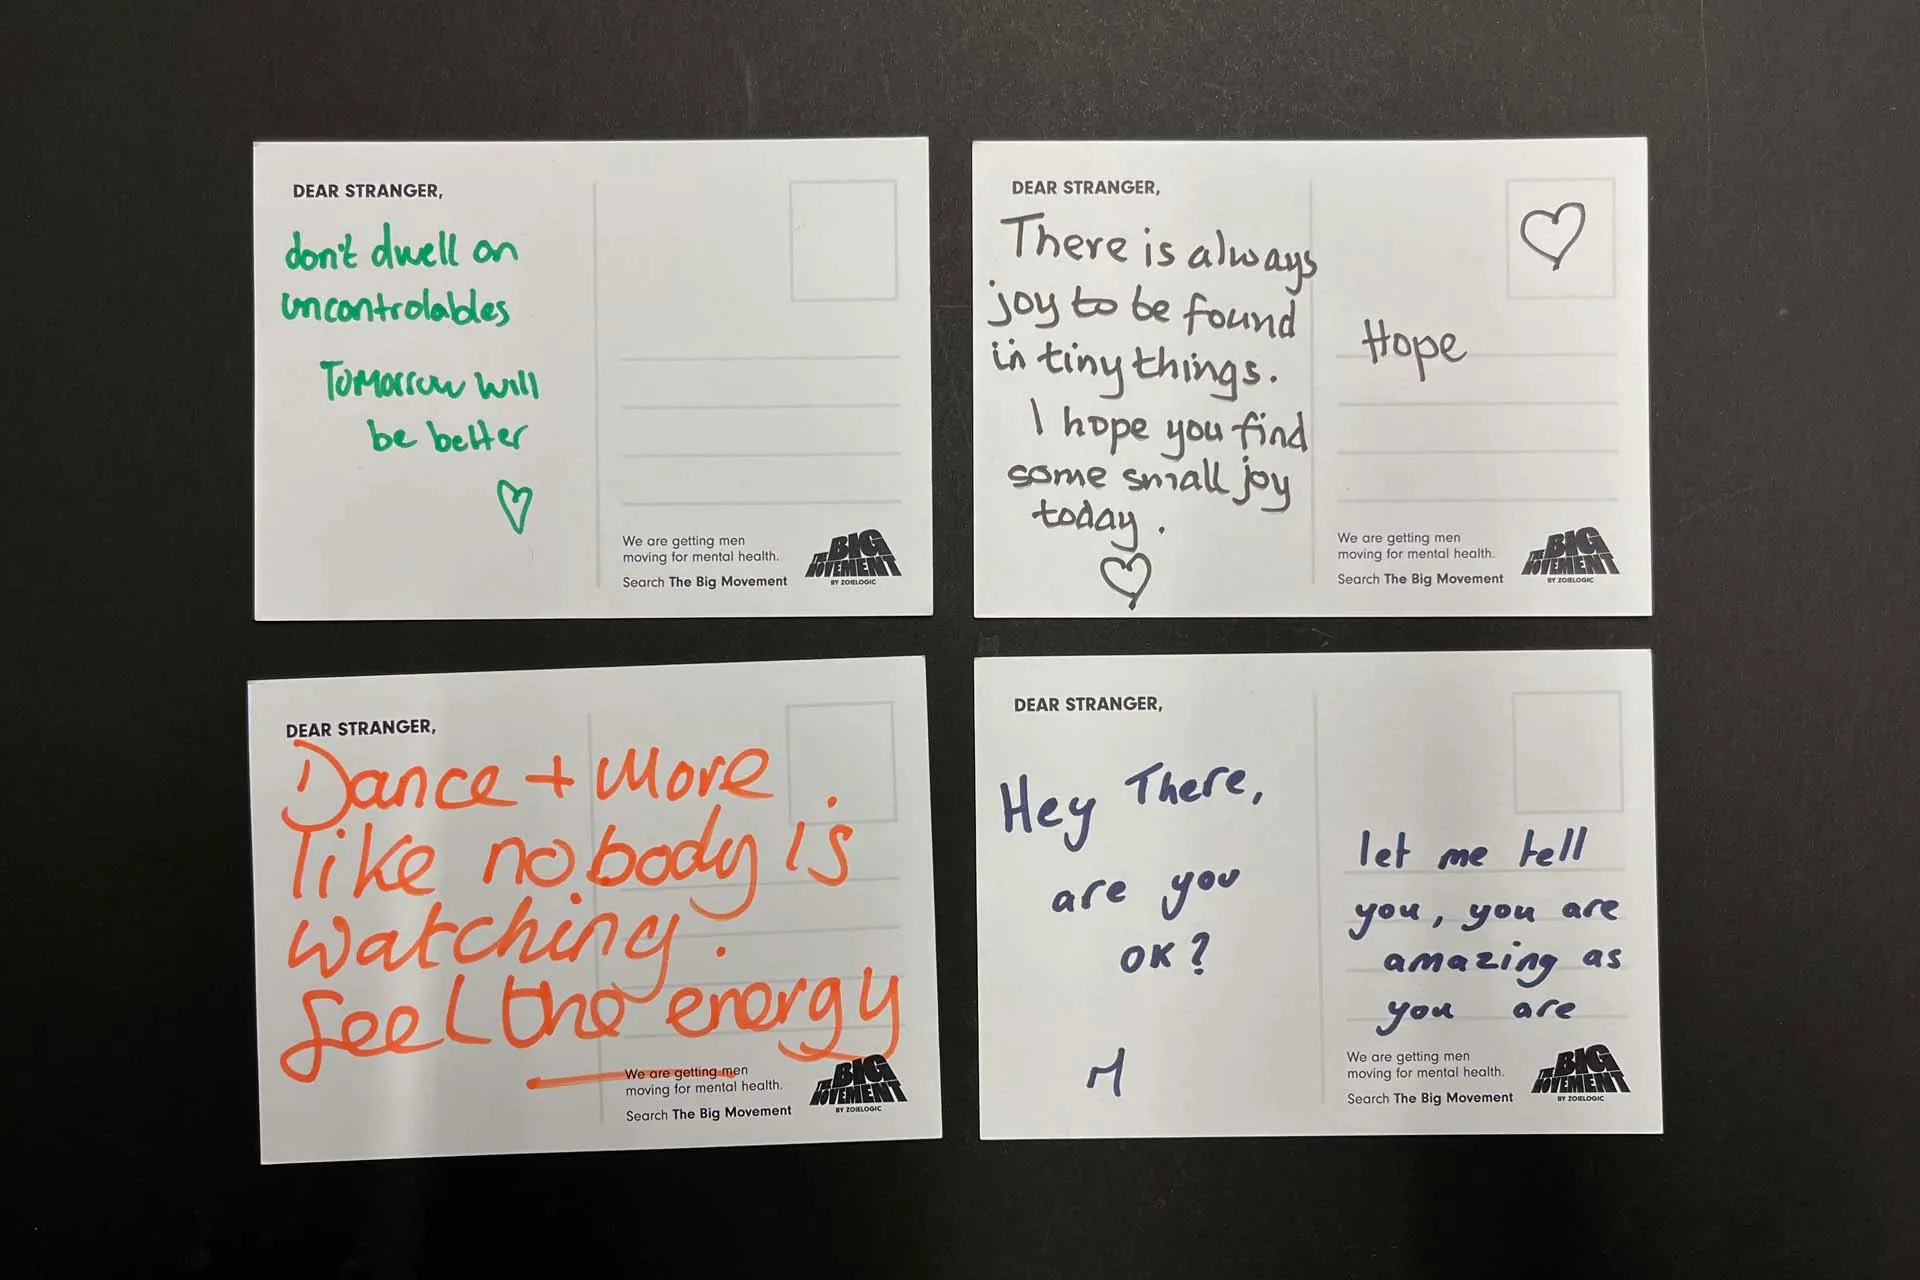 DEAR STRANGER,
don't dwell on
uncontrolables
Tomorrow will
be better
We are getting men
moving for mental health.
Search The Big Movement
THE BIG
MOVEMENT
BY ZOIELOGIC
DEAR STRANGER,
There is always
joy to be found
in tiny things.
I hope you find
some small joy
today.
Hope
We are getting men
moving for mental health.
Search The Big Movement
THE BIG
MOVEMENT
BY ZOIELOGIC
DEAR STRANGER,
Dance + Move
like nobody is
watching.
feel the energy
We are getting men
moving for mental health.
Search The Big Movement
THE BIG
MOVEMENT
BY ZOIELOGIC
DEAR STRANGER,
Hey There,
are you
OK?
let me tell
you, you are
amazing as
you are
We are getting men
moving for mental health.
Search The Big Movement
THE BIG
MOVEMENT
BY ZOIELOGIC